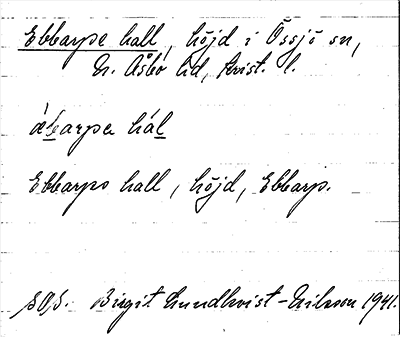 Ebbarpe hall, höjd i Össjö sn,
N. Åsbo hd, Krist. l.
ábarpa hál
Ebbarps hall, höjd, Ebbarp.
SOS. Birgit Lundkvist-Nilsson 1941.